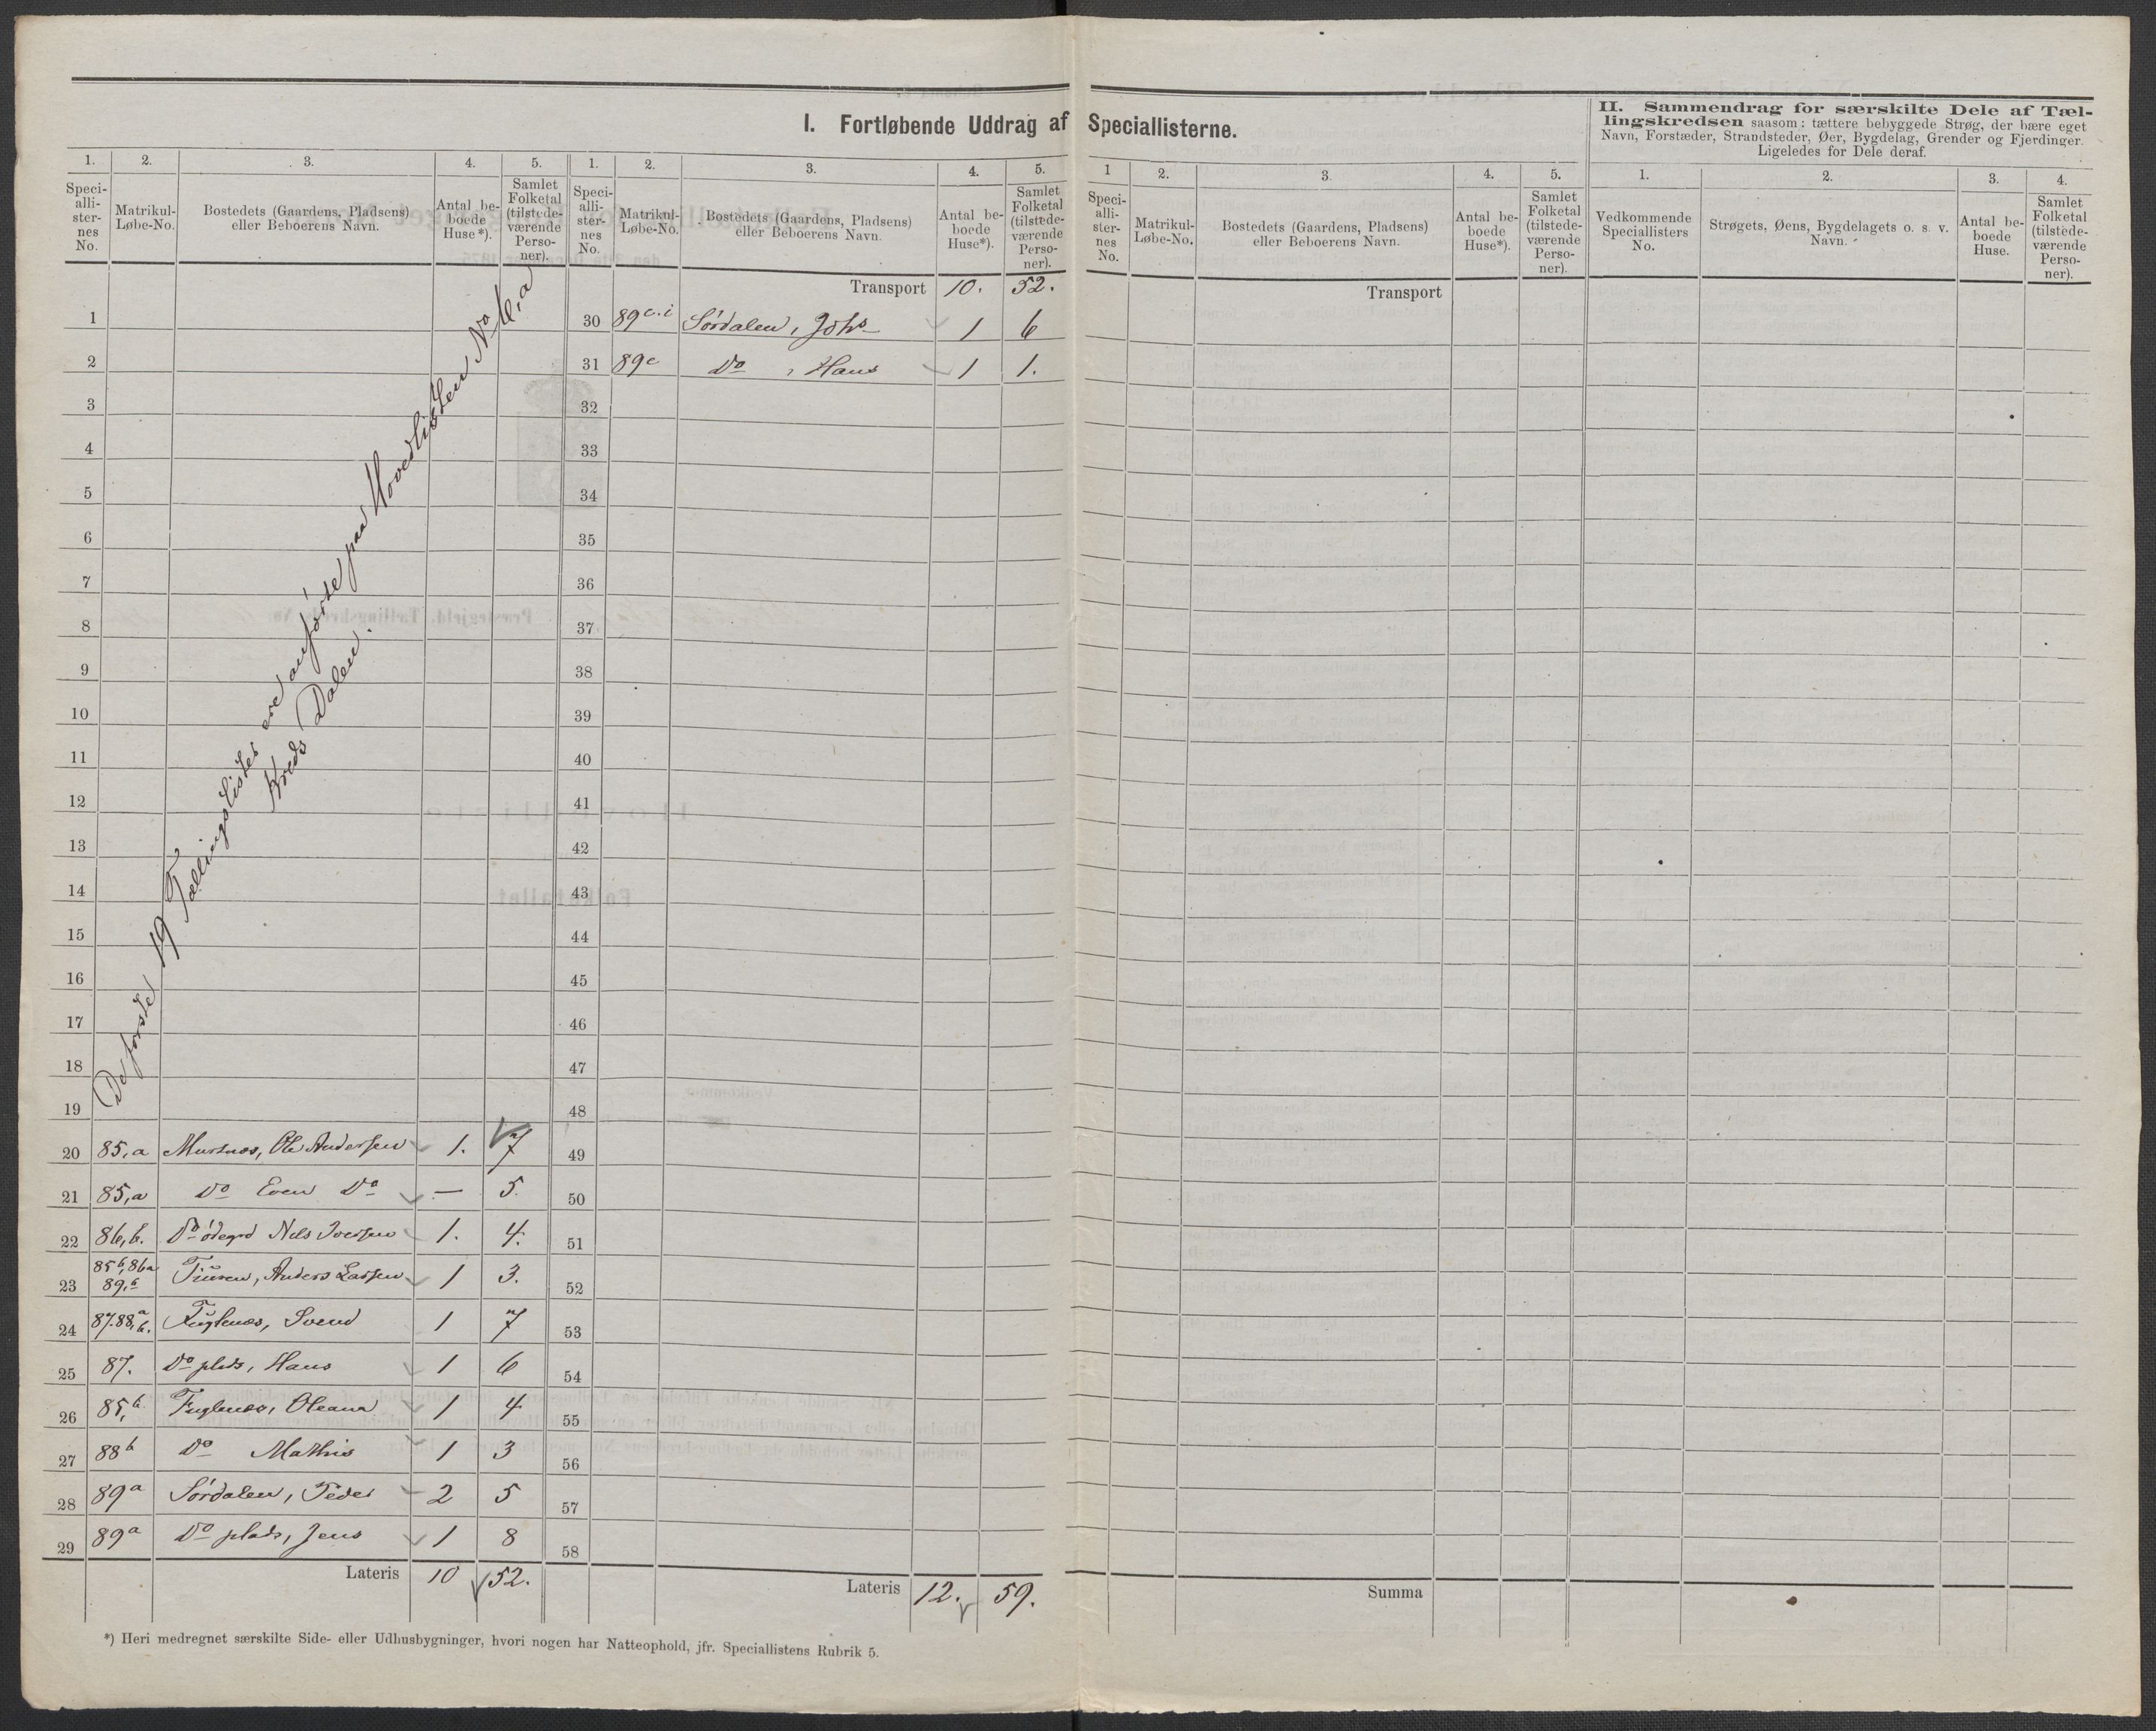 I. Fortløbende Uddrag af Speciallisterne.
II. Sammendrag for særskilte Dele af Tæl-
lingskredsen saasom: tættere bebyggede Strøg, der bære eget
Navn, Forstæder, Strandsteder, Øer, Bygdelag, Grender og Fjerdinger.
Ligeledes for Dele deraf.
1. 2. 3. 4. 5. 1. 2. 3. 4. 5. 1 2. 3. 4. 5. 1. 2. 3. 4.
Speci-
alli-
ster-
nes
No.
Matrikul-
Løbe-No.
Bostedets (Gaardens, Pladsens)
eller Beboerens Navn.
Antal be-
boede
Huse*).
Samlet
Folketal
(tilstede-
værende
Perso-
ner).
Speci-
alli-
ster-
nes
No.
Matrikul-
Løbe-No.
Bostedets (Gaardens, Pladsens)
eller Beboerens Navn.
Antal be-
boede
Huse*).
Samlet
Folketal
(tilstede-
værende
Perso-
ner).
Speci-
alli-
ster-
nes
No.
Matrikul-
Løbe-No.
Bostedets (Gaardens, Pladsens)
eller Beboerens Navn.
Antal be-
boede
Huse*).
Samlet
Folketal
(tilstede-
værende
Perso-
ner).
Vedkommende
Speciallisters
No.
Strøgets, Øens, Bygdelagets o. s. v.
Navn.
Antal be-
boede
Huse.
Samlet
Folketal
(tilstede-
værende
Perso-
ner).
De første 19 Tællingslister ere anførte paa Hovedlisten No 6,a
Kreds Dalen.
1
2
3
4
5
6
7
8
9
10
11
12
13
14
15
16
17
18
19
20 85,a Mursnes, Ole Andersen 1. 7
21 85,a Do Even Do — 5.
22 86,b. Do ødegrd Nels Iversen 1. 4.
23 85b,86a 89,c Anders Larsen 1 3.
24 87.88,a b. Fuglenes, Svend 1 7
25 87. Do plads, Hans 1 6
26 85,b Fuglenes, Oleana 1 4
27 88b Do Mathis 1 3
28 89a Sørdalen, Peder 2 5
29 89a Do plads, Jens 1 8
Lateris 10 52.
Transport 10. 52.
30 89c.i Sørdalen, Johs 1 6
31 89c Do , Hans 1 1.
32
33
34
35
36
37
38
39
40
41
42
43
44
45
46
47
48
49
50
51
52
53
54
55
56
57
58
Lateris 12. 59.
Transport
Summa
*) Heri medregnet særskilte Side- eller Udhusbygninger, hvori nogen har Natteophold, jfr. Speciallistens Rubrik 5.